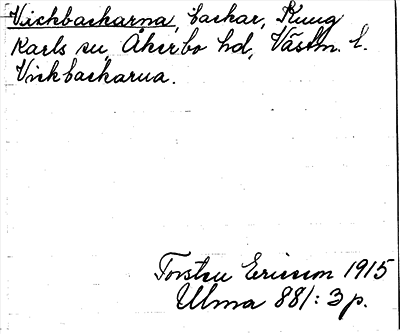 Vickbackarna, backar, Kung
Karls sn, Åkerbo hd, Västm. l.
Vickbackarna.
Torsten Ericson 1915
Ulma 881: 3 p.